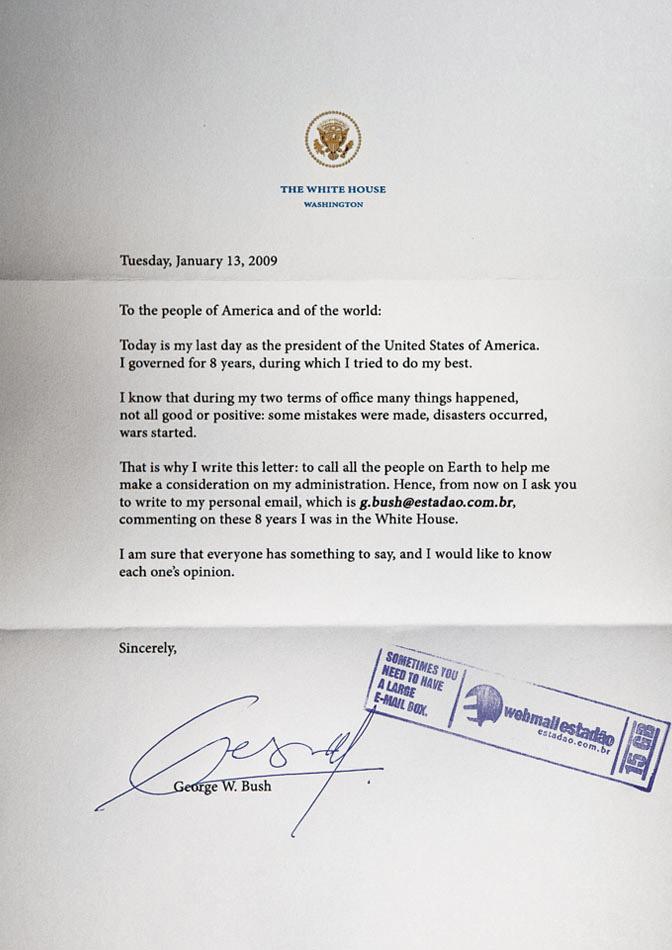 THE WHITE HOUSE
WASHINGTON
Tuesday, January 13, 2009
To the people of America and of the world:
Today is my last day as the president of the United States of America.
I governed for 8 years, during which I tried to do my best.
I know that during my two terms of office many things happened,
not all good or positive: some mistakes were made, disasters occurred,
wars started.
That is why I write this letter: to call all the people on Earth to help me
make a consideration on my administration. Hence, from now on I ask you
to write to my personal email, which is g.bush@estadao.com.br,
commenting on these 8 years I was in the White House.
I am sure that everyone has something to say, and I would like to know
each one's opinion.
Sincerely,
George W. Bush
SOMETIMES YOU
NEED TO HAVE
A LARGE
E-MAIL BOX.
webmail estadão
estadao.com.br
15 GB